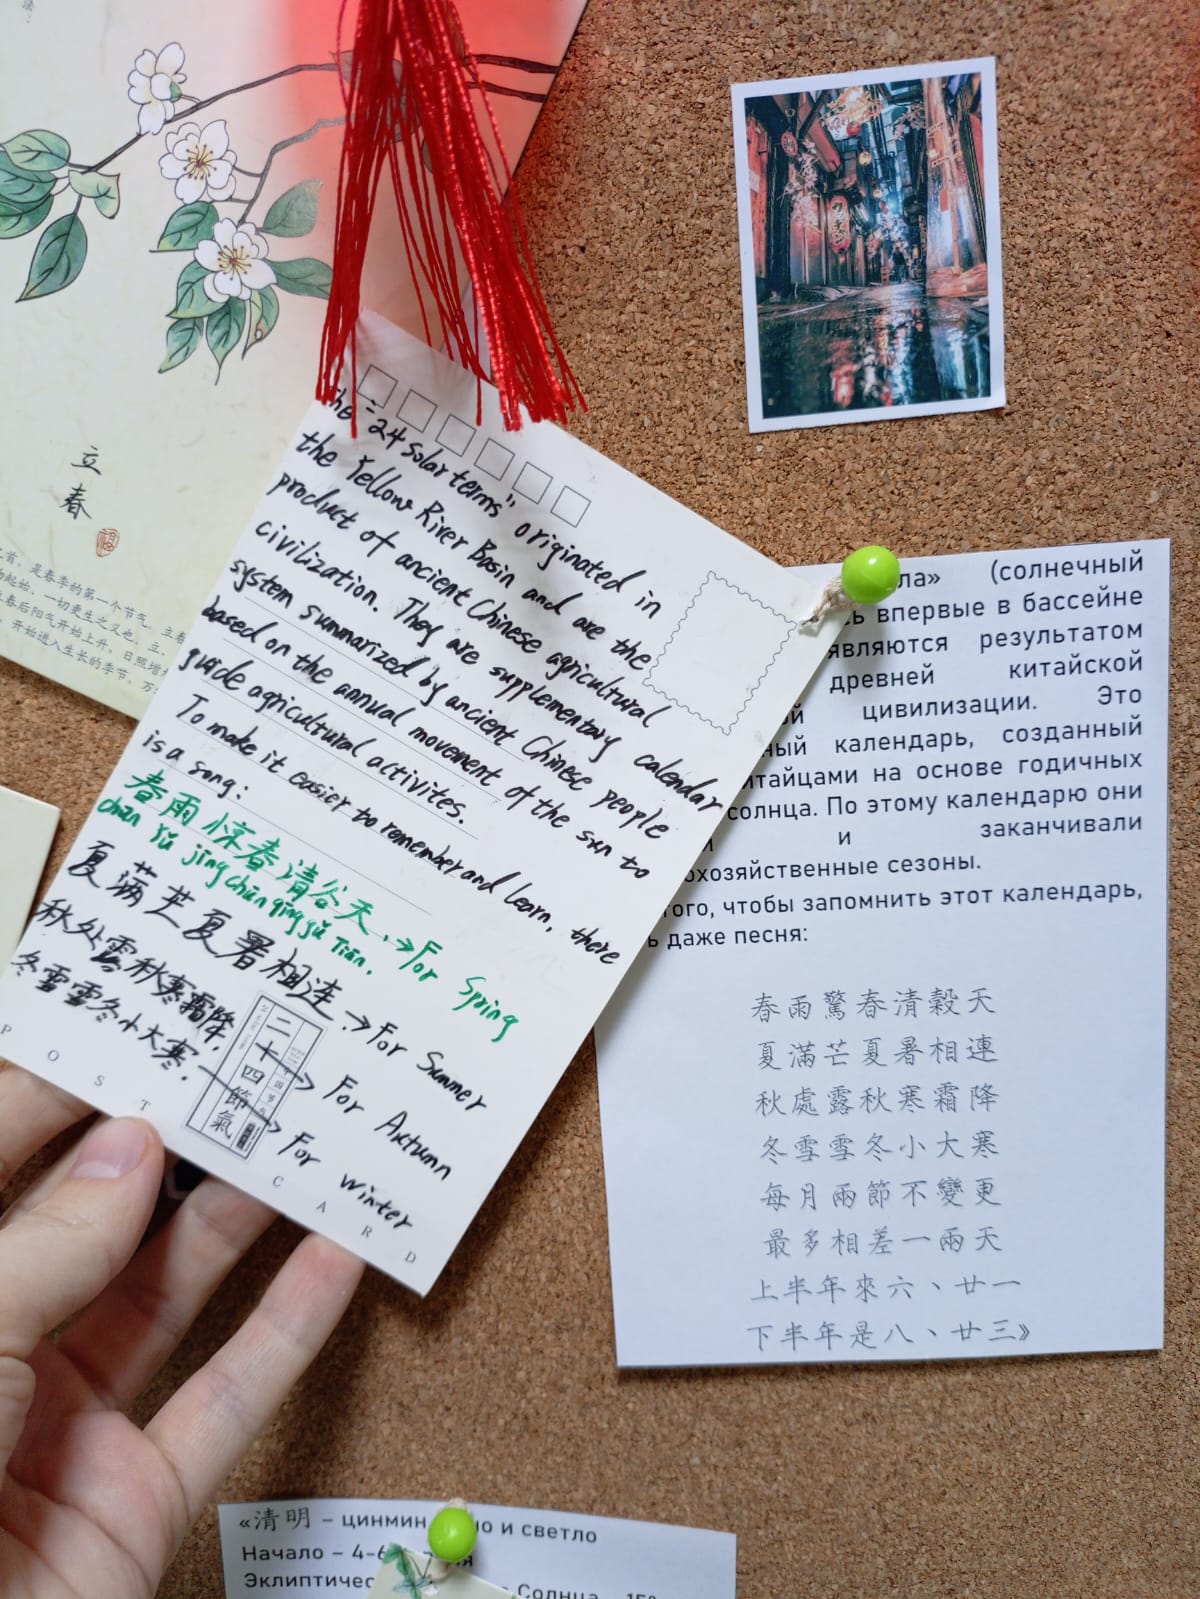 立
春
福
首，是春季的第一个节气。立春
起始，一切更生之义也。立
春后阳气开始上升，日照增
开始进入生长的季节，万
The "24 Solar terms" originated in
the Yellow River Basin and are the
product of ancient Chinese agricultural
civilization. They are supplementary calendar
system summarized by ancient Chinese people
based on the annual movement of the sun to
guide agricultural activites.
To make it easier to remember and learn, there
is a song:
春雨惊春清谷天, → For Spring
chūn Yǔ jīng chūn qīng gǔ Tiān.
夏满芒夏暑相连 . → For Summer
秋处露秋寒霜降, → For Autumn
冬雪雪冬小大寒. → For Winter
二十四節氣
POST CARD
ла» (солнечный
ь впервые в бассейне
являются результатом
древней китайской
й цивилизации. Это
ный календарь, созданный
итайцами на основе годичных
солнца. По этому календарю они
и и заканчивали
охозяйственные сезоны.
того, чтобы запомнить этот календарь,
ь даже песня:
春雨驚春清穀天
夏滿芒夏暑相連
秋處露秋寒霜降
冬雪雪冬小大寒
每月兩節不變更
最多相差一兩天
上半年來六、廿一
下半年是八、廿三》
«清明 – цинмин о и светло
Начало – 4-6 я
Эклиптичес Солнца – 15°